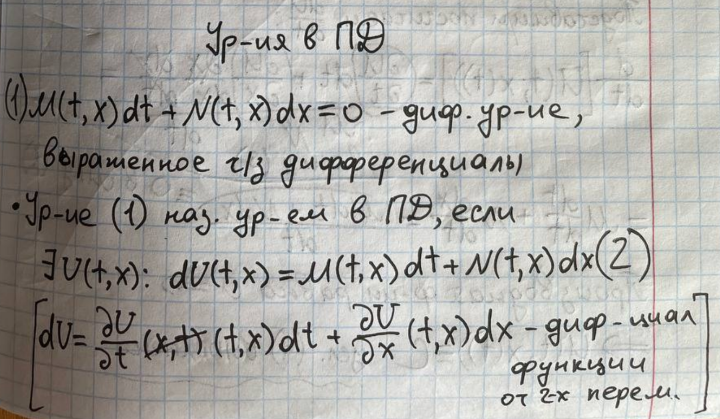 Ур-ия в ПД
(1) M(t,x)dt + N(t,x)dx = 0 - диф. ур-ие,
выраженное ч/з дифференциалы
• Ур-ие (1) наз. ур-ем в ПД, если
∃ U(t,x): dU(t,x) = M(t,x)dt + N(t,x)dx (2)
[dU = ∂U/∂t (x,t) (t,x)dt + ∂U/∂x (t,x)dx - диф-циал
функции
от 2-х перем.]